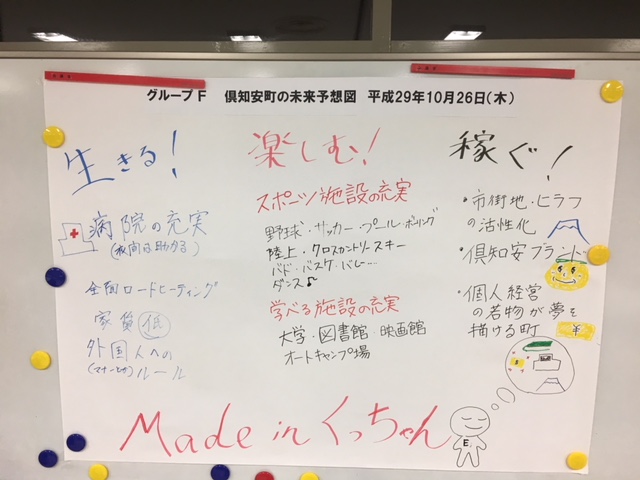 グループF 倶知安町の未来予想図 平成29年10月26日(木)
生きる!
病院の充実
(夜間は助かる)
全面ロードヒーティング
家賃 低
外国人への
(マナーとか) ルール
楽しむ!
スポーツ施設の充実
野球・サッカー・プール・ボーリング
陸上・クロスカントリースキー
バド・バスケ・バレー…
ダンス♪
学べる施設の充実
大学・図書館 映画館
オートキャンプ場
稼ぐ!
・市街地・ヒラフ
の活性化
・倶知安ブランド
・個人経営
の若物が夢を
描ける町
¥
Made in くっちゃん
E